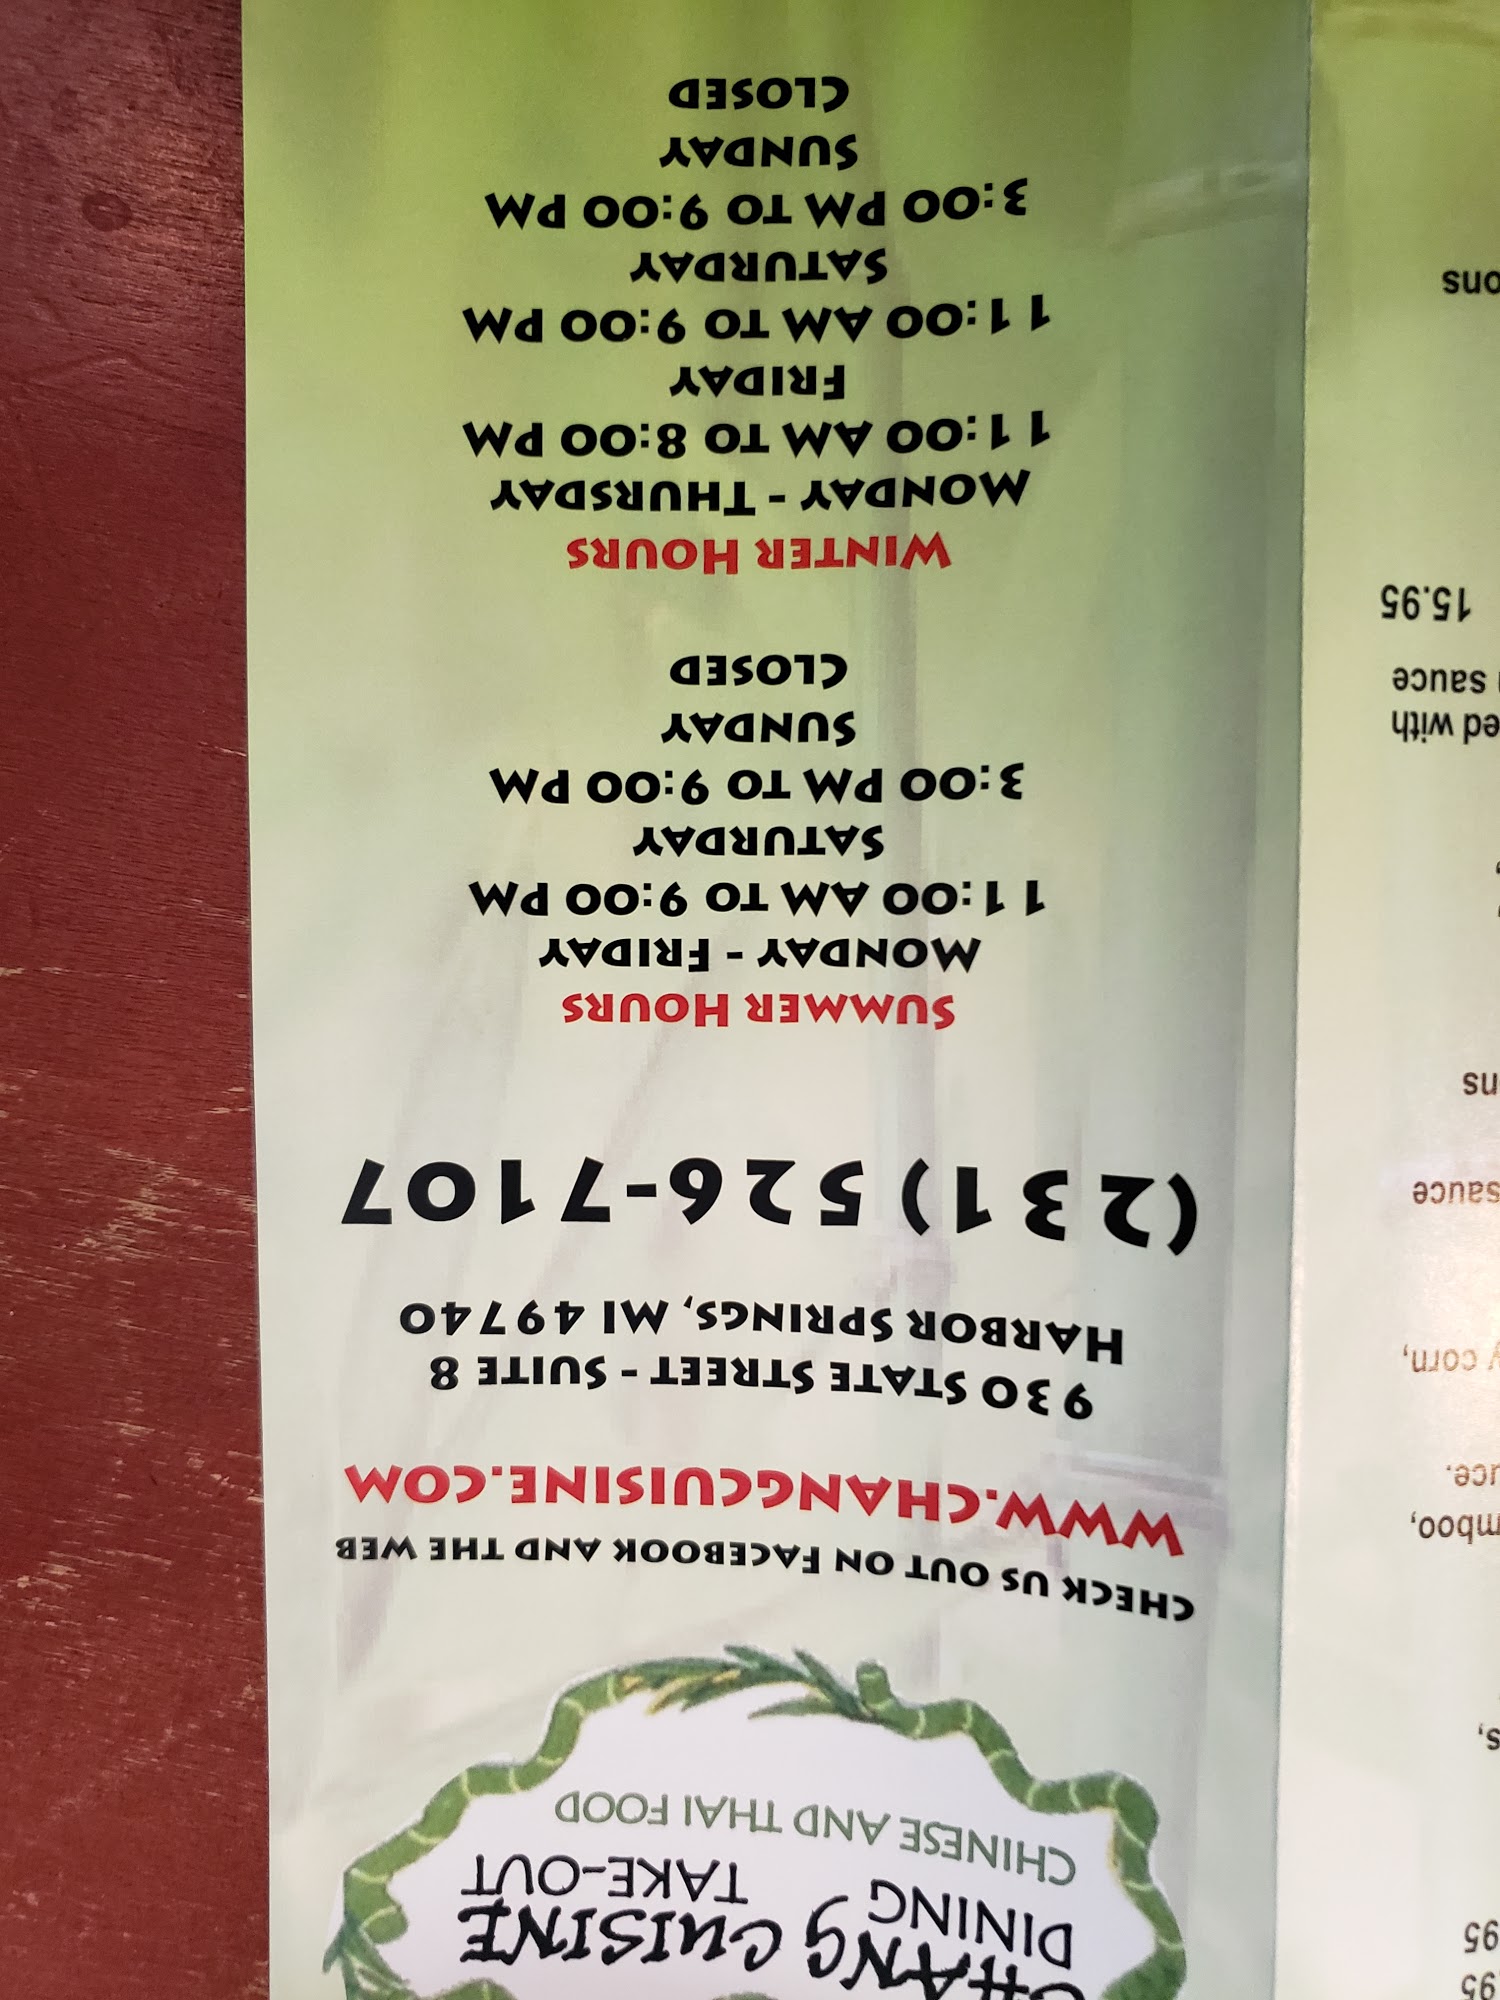 CHANG CUISINE
DINING TAKE-OUT
CHINESE AND THAI FOOD
CHECK US OUT ON FACEBOOK AND THE WEB
WWW.CHANGCUISINE.COM
930 STATE STREET - SUITE 8
HARBOR SPRINGS, MI 49740
(231) 526-7107
SUMMER HOURS
MONDAY - FRIDAY
11:00 AM TO 9:00 PM
SATURDAY
3:00 PM TO 9:00 PM
SUNDAY
CLOSED
WINTER HOURS
MONDAY - THURSDAY
11:00 AM TO 8:00 PM
FRIDAY
11:00 AM TO 9:00 PM
SATURDAY
3:00 PM TO 9:00 PM
SUNDAY
CLOSED
corn,
sauce
with
sauce
15.95